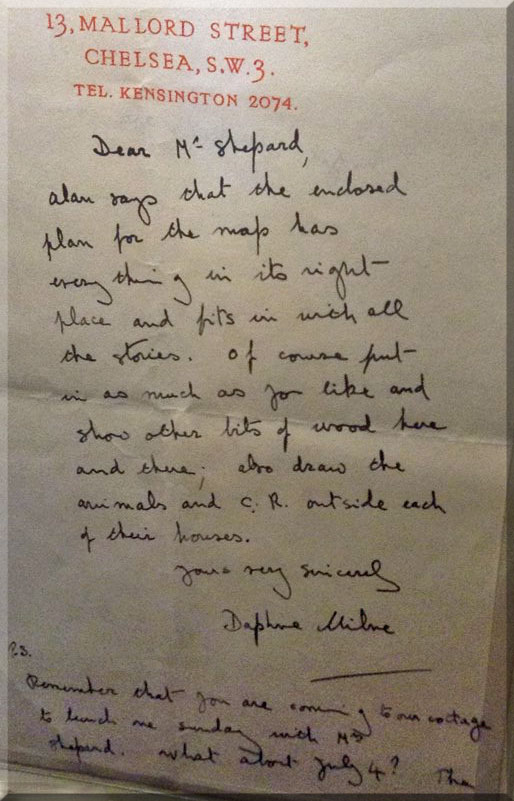 13, MALLORD STREET,
CHELSEA, S.W.3.
TEL. KENSINGTON 2074.
Dear Mr Shepard,
Alan says that the enclosed
plan for the map has
everything in its right
place and fits in with all
the stories. Of course put
in as much as you like and
show other bits of wood here
and there; also draw the
animals and C. R. outside each
of their houses.
Yours very sincerely
Daphne Milne
P.S.
Remember that you are coming to our cottage
to lunch one Sunday with Mrs
Shepard. What about July 4? The